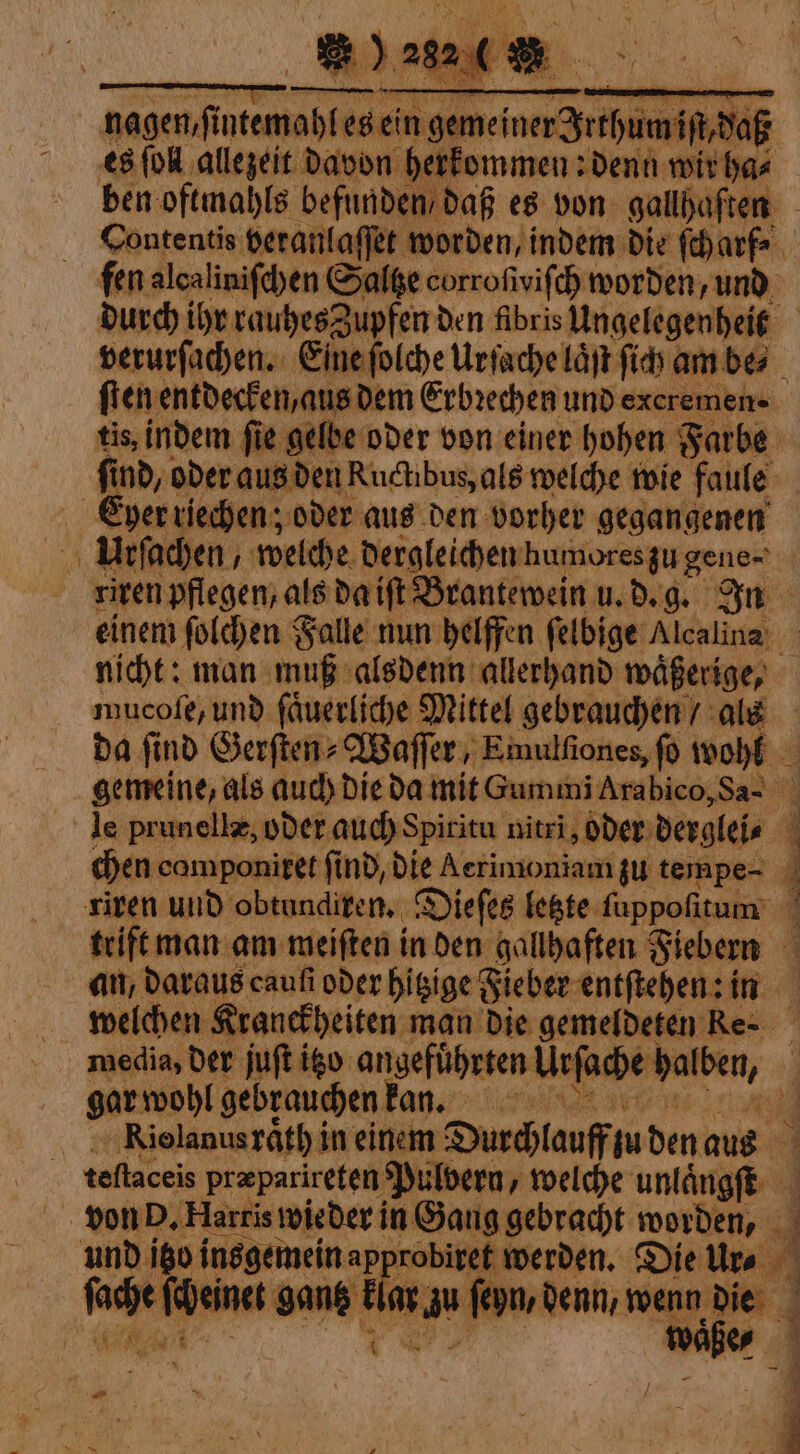 ) 282 (
nagen, ſintemahl es ein gemeiner Irthum iſt, daß
es ſoll allezeit davon herkommen: denn wir ha⸗
ben oftmahls befunden, daß es von gallhaften
Contentis veranlaſſet worden, indem die ſcharf⸗
fen alcaliniſchen Saltze corroſiviſch worden, und
durch ihr rauhes Zupfen den fibris Ungelegenheit
verurſachen. Eine ſolche Urſache läſt ſich am be⸗
ſten entdecken, aus dem Erbrechen und excremen-
tis, indem ſie gelbe oder von einer hohen Farbe
ſind, oder aus den Ructibus, als welche wie faule
Eyer riechen; oder aus den vorher gegangenen
Urſachen, welche dergleichen humores zu gene-
riren pflegen, als da iſt Brantewein u. d. g. In
einem ſolchen Falle nun helffen ſelbige Alcalina
nicht: man muß alsdenn allerhand wäßerige,
mucoſe, und ſäuerliche Mittel gebrauchen / als
da ſind Gerſten⸗Waſſer, Emulſiones, ſo wohl
gemeine, als auch die da mit Gummi Arabico, Sa-
le prunellæ, oder auch Spiritu nitri, oder derglei⸗
chen componiret ſind, die Acrimoniam zu tempe-
riren und obtundiren. Dieſes letzte ſuppoſitum
trift man am meiſten in den gallhaften Fiebern
an, daraus cauſi oder hitzige Fieber entſtehen: in
welchen Kranckheiten man die gemeldeten Re-
media, der juſt itzo angeführten Urſache halben,
gar wohl gebrauchen kan.
Riolanus räth in einem Durchlauff zu den aus
teſtaceis præparireten Pulvern, welche unlängſt
von D. Harris wieder in Gang gebracht worden,
und itzo insgemein approbiret werden. Die Ur⸗
ſache ſcheinet gantz klar zu ſeyn, denn, wenn die
wäße⸗